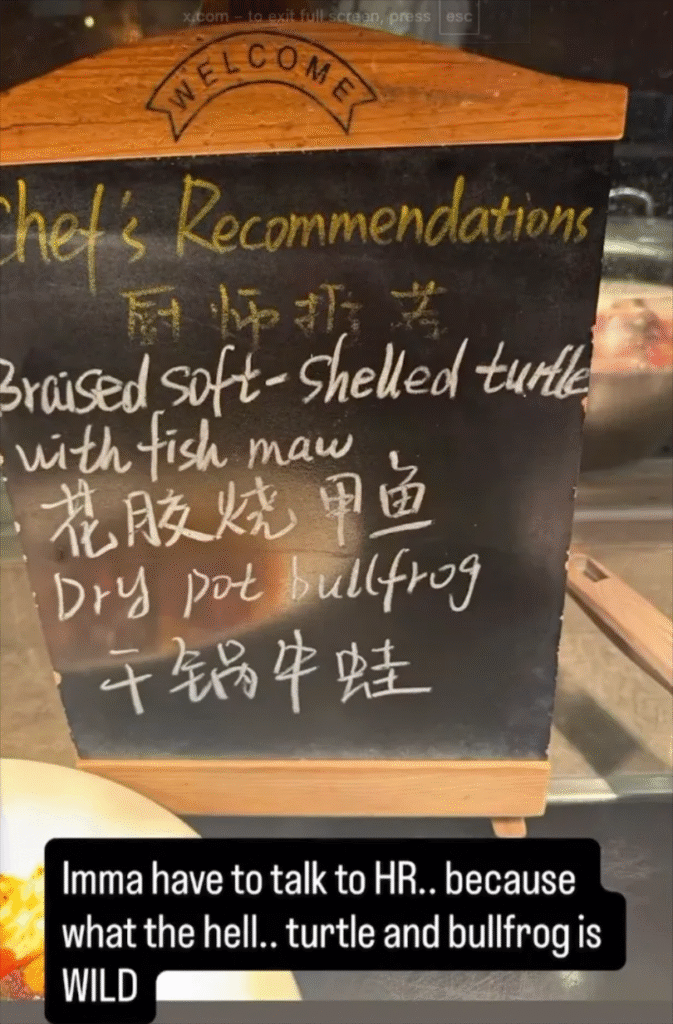 x.com – to exit full screen, press esc
WELCOME
Chef's Recommendations
厨师推荐
Braised soft-shelled turtle
with fish maw
花胶烧甲鱼
Dry pot bullfrog
干锅牛蛙
Imma have to talk to HR.. because
what the hell.. turtle and bullfrog is
WILD